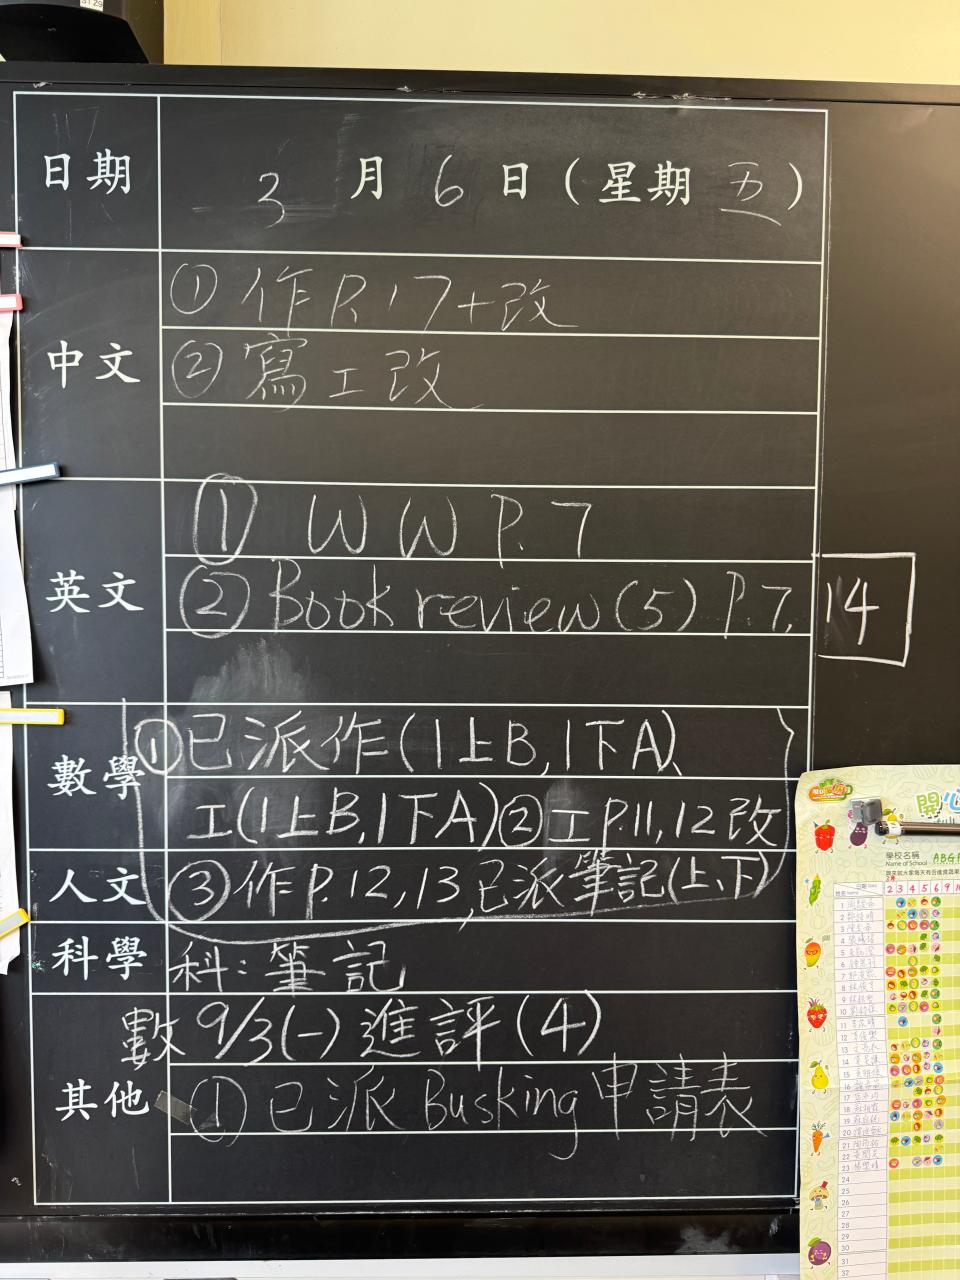 日期 3 月 6 日 ( 星期 五 )
中文
① 作 P.17+改
② 寫工改
英文
① WW P.7
② Book review (5) P.7, 14
數學
① 已派作(1上B,1下A)、
工(1上B,1下A) ② 工 P.11,12改
人文
③ 作 P.12,13,已派筆記(上、下)
科學
科:筆記
數 9/3(一) 進評(4)
其他
① 已派 Busking 申請表
開心
學校名稱
Name of School
日期
2 3 4 5 6 9
1
2
3
4
5
6
7
8
9
10
11
12
13
14
15
16
17
18
19
20
21
22
23
24
25
26
27
28
29
30
31
32